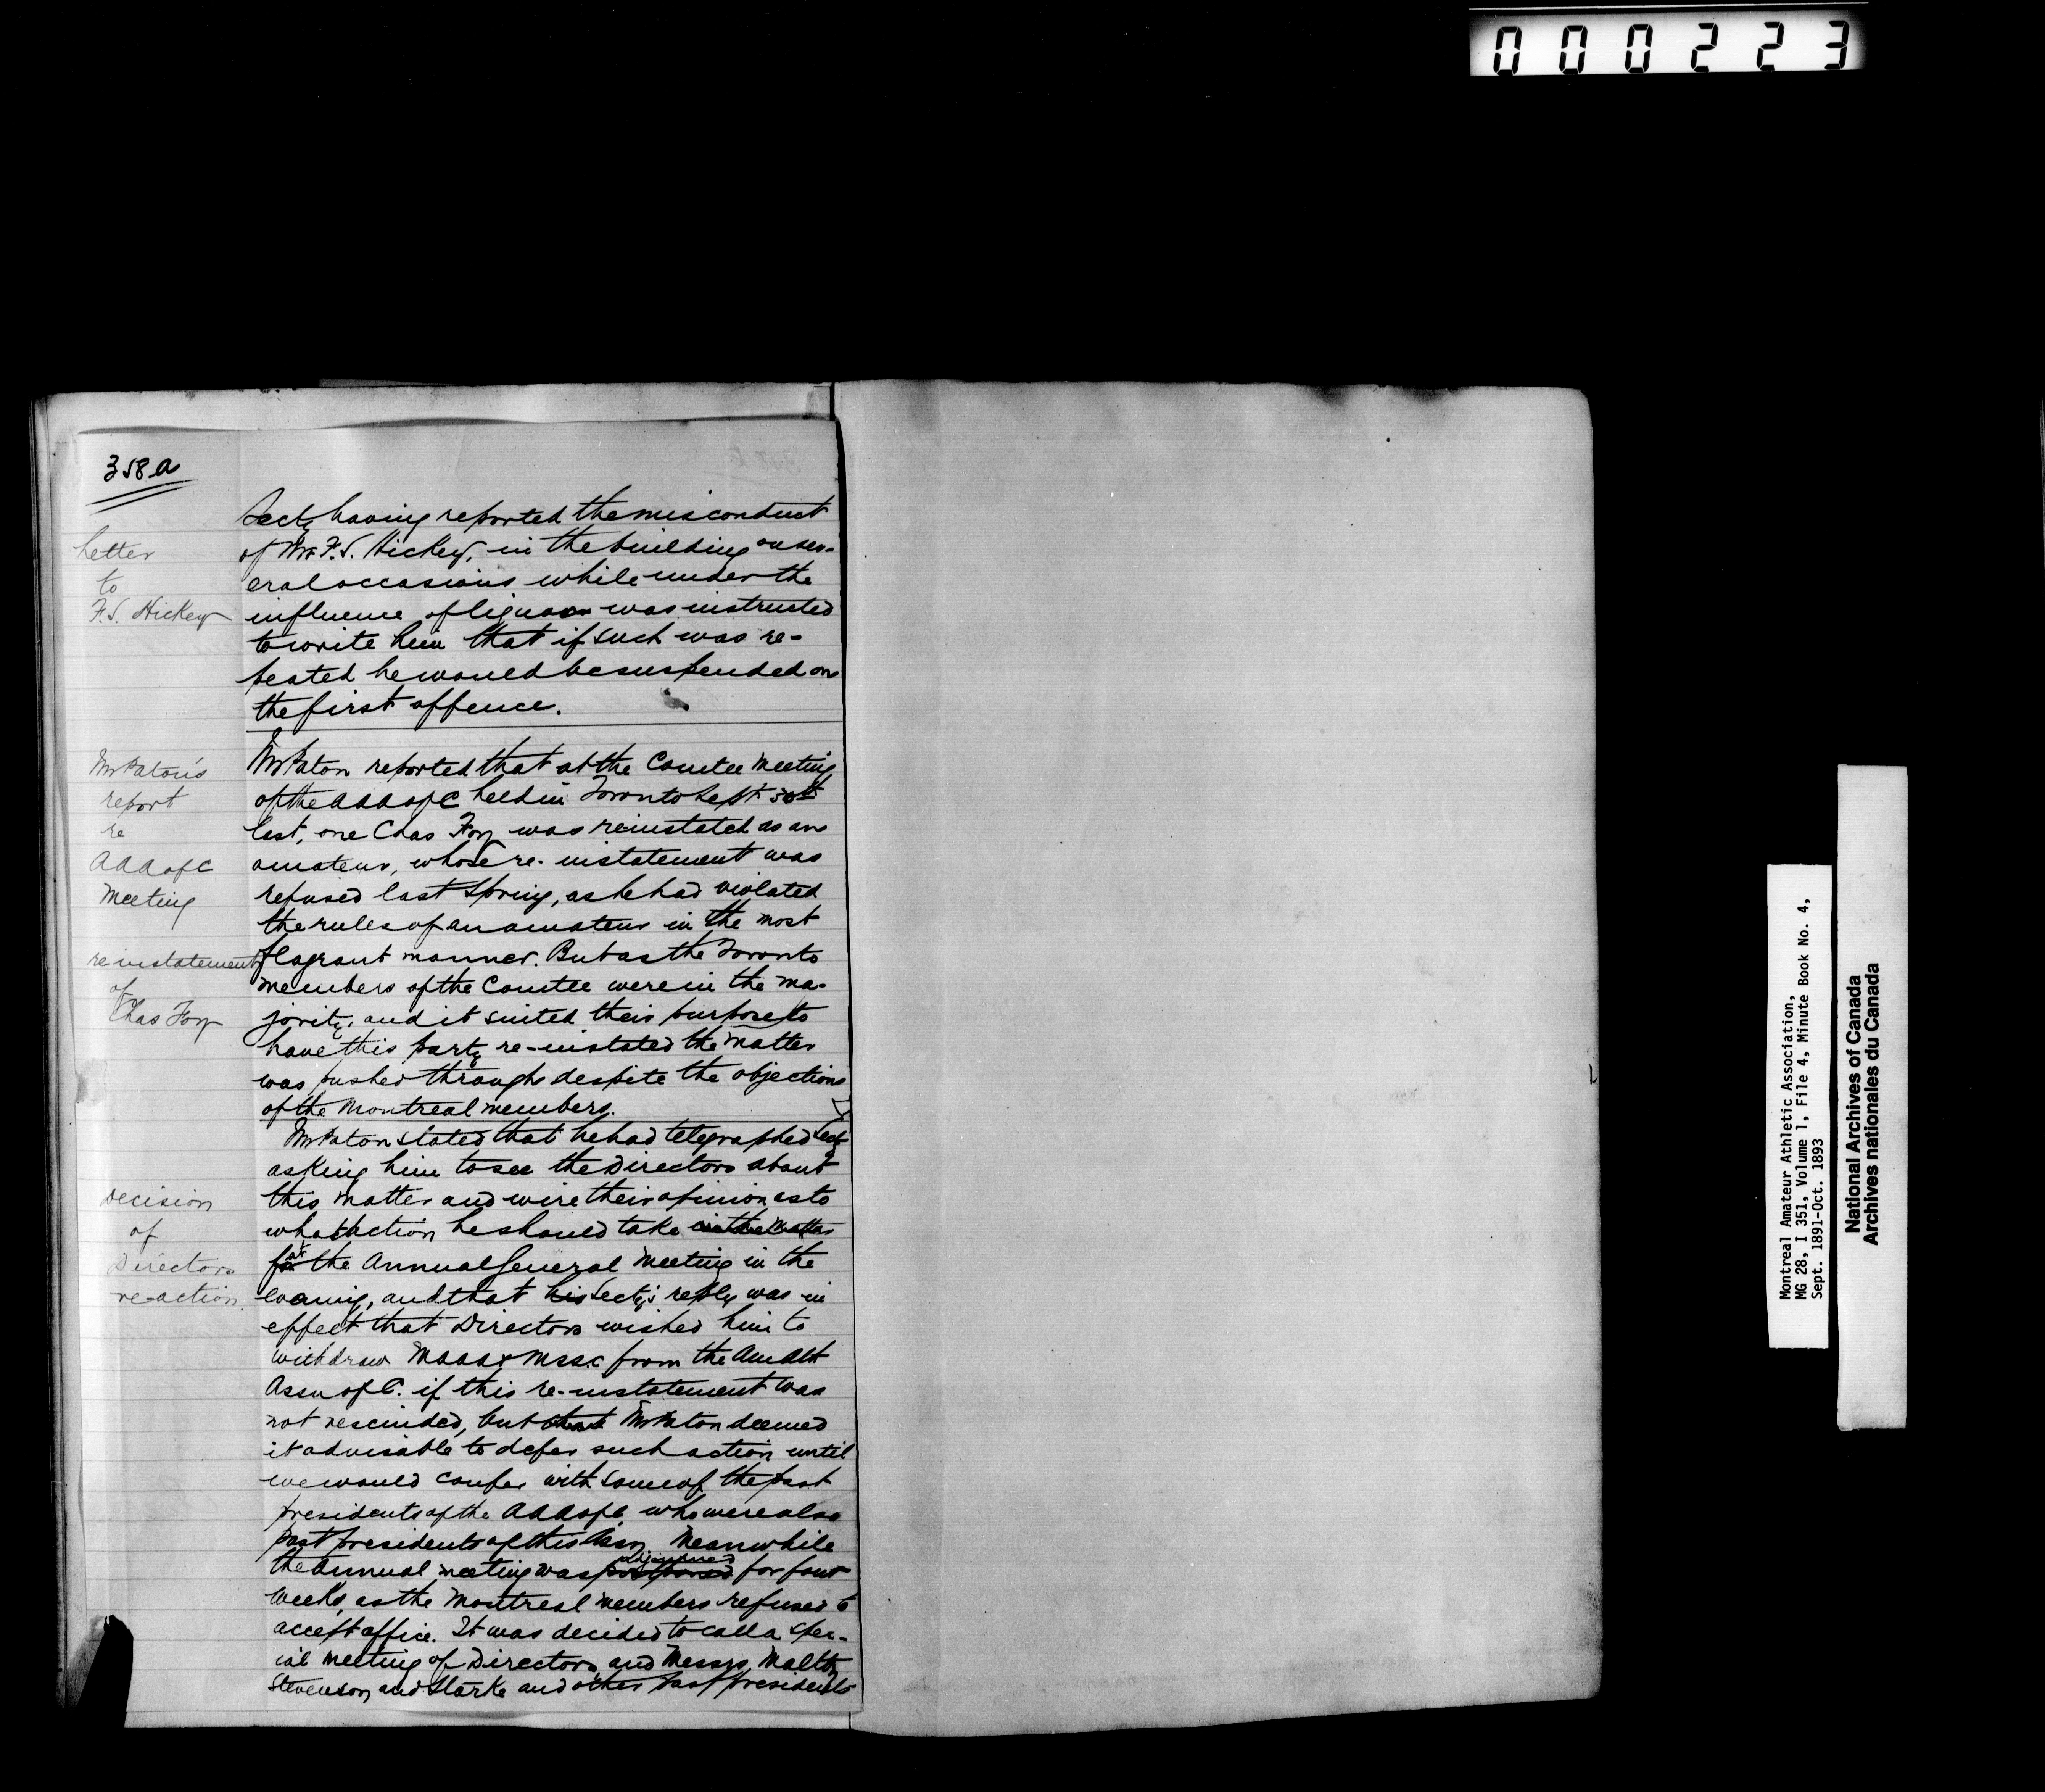 000223
358a
Letter
to
F.S. Hickey
Secty having reported the misconduct
of Mr F.S. Hickey, in the building on sev-
eral occasions while under the
influence of liquor was instructed
to write him that if such was re-
peated he would be suspended on
the first offence.
Mr Paton's
report
re
AAA of C
Meeting
reinstatement
of
Chas Foy
Mr Paton reported that at the Comtee Meeting
of the AAA of C held in Toronto Sept 30th
last, one Chas Foy was reinstated as an
amateur, whose re-instatement was
refused last Spring, as he had violated
the rules of an amateur in the most
flagrant manner. But as the Toronto
members of the Comtee were in the ma-
jority, and it suited their purpose to
have this party re-instated the matter
was pushed through despite the objections
of the Montreal members.
Decision
of
Directors
re action.
Mr Paton stated that he had telegraphed Secty
asking him to see the Directors about
this matter and wire their opinion as to
what action he should take in the matter
at the Annual General Meeting in the
evening, and that his Secty's reply was in
effect that Directors wished him to
withdraw MAAA & MSSC from the Am Ath
Assn of C. if this re-instatement was
not rescinded, but that Mr Paton deemed
it advisable to defer such action until
we would confer with some of the past
presidents of the AAA of C who were also
past presidents of this Assn Meanwhile
the annual meeting was postponed adjourned for four
weeks, as the Montreal members refused to
accept office. It was decided to call a spec-
ial meeting of Directors and Messrs Maltby
Stevenson and Starke and other past presidents
Montreal Amateur Athletic Association,
MG 28, I 351, Volume 1, File 4, Minute Book No. 4,
Sept. 1891-Oct. 1893
National Archives of Canada
Archives nationales du Canada